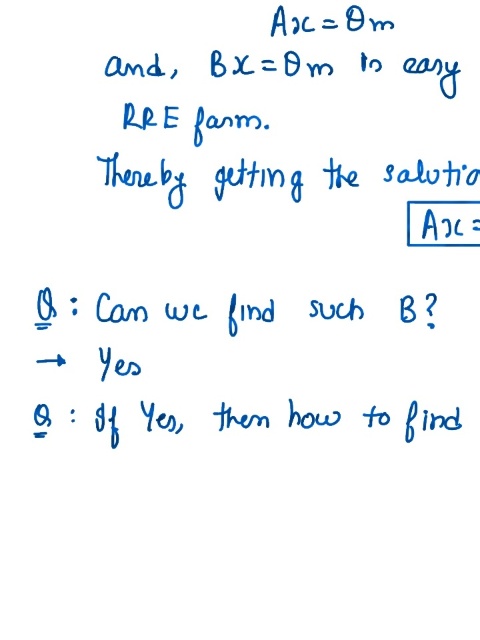 Ax = θm
and, Bx = θm is easy
RRE form.
Thereby getting the solutio
Ax =
Q : Can we find such B?
→ Yes
Q : If Yes, then how to find